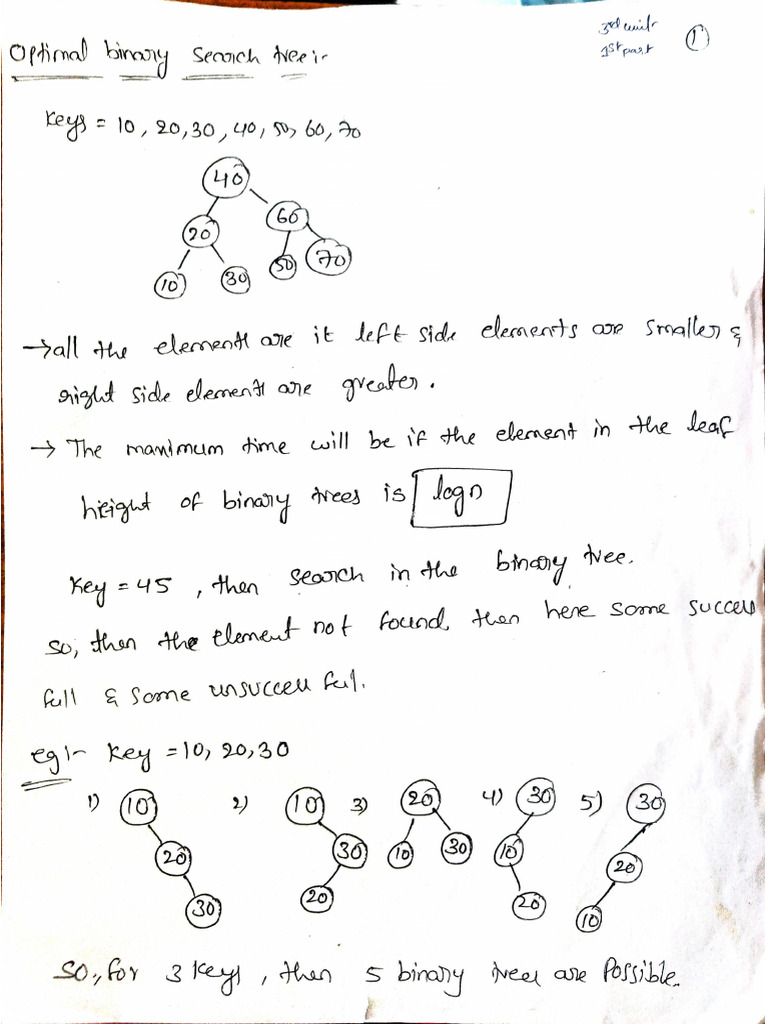 3rd unit
1st part
1
Optimal binary search tree:-
Keys = 10, 20, 30, 40, 50, 60, 70
40
60
20
50 70
10 30
→ all the element are it left side elements are smaller &
right side element are greater.
→ The maximum time will be if the element in the leaf
height of binary trees is log n
Key = 45, then search in the binary tree.
so, then the element not found, then here some success
full & some unsuccessful.
eg:- Key = 10, 20, 30
1) 10 2) 10 3) 20 4) 30 5) 30
20 30 10 30 10 20
30 20 20 10
So, for 3 keys, then 5 binary trees are possible.